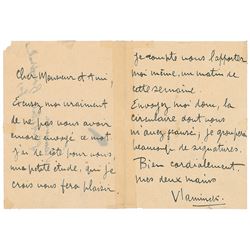 Cher Monsieur et Ami,
Excusez moi vraiment
de ne pas vous avoir
encore envoyé ce mot
j'ai de côté pour vous,
ma petite étude, qui je
crois vous fera plaisir.
je compte vous l'apporter
moi même, un matin de
cette semaine.
Envoyez moi donc, la
circulaire dont vous
m'avez causé, je grouperai
beaucoup de signatures.
Bien cordialement
mes deux mains
Vlaminck.